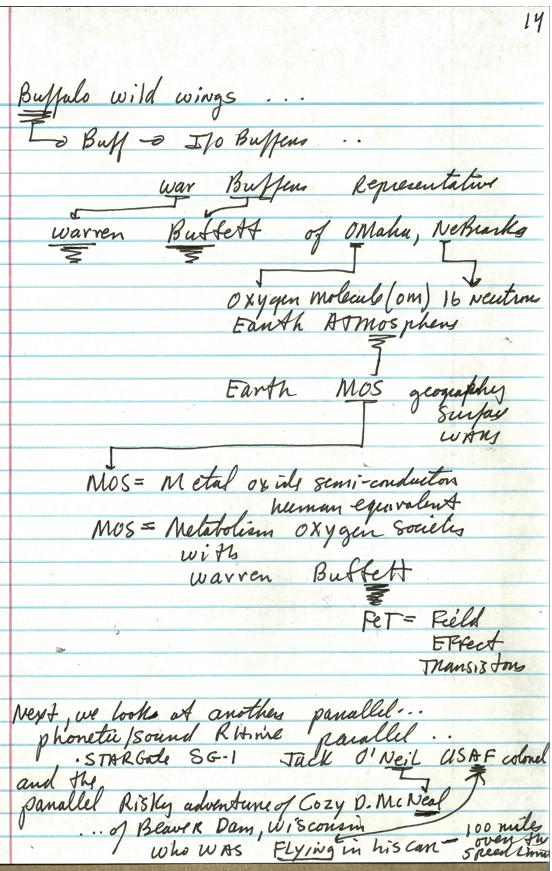 14
Buffalo wild wings ...
Buff → I/O Buffers ..
war Buffers Representative
warren Buffett of OMaha, NeBraska
Oxygen molecule (om) 16 neutrons
Earth ATMOsphere
Earth MOS geography
Surface
wars
MOS = Metal oxide semi-conductor
human equivalent
MOS = Metabolism Oxygen Societies
with
warren Buffett
FeT = Field
Effect
Transistors
Next, we look at another parallel...
phonetic/sound Rhime parallel ..
. STARGate SG-1 Jack O'Neil USAF colonel
and the
parallel Risky adventure of Cozy D. McNeal
... of Beaver Dam, Wisconsin
who was Flying in his car - 100 miles
over the
speed limit